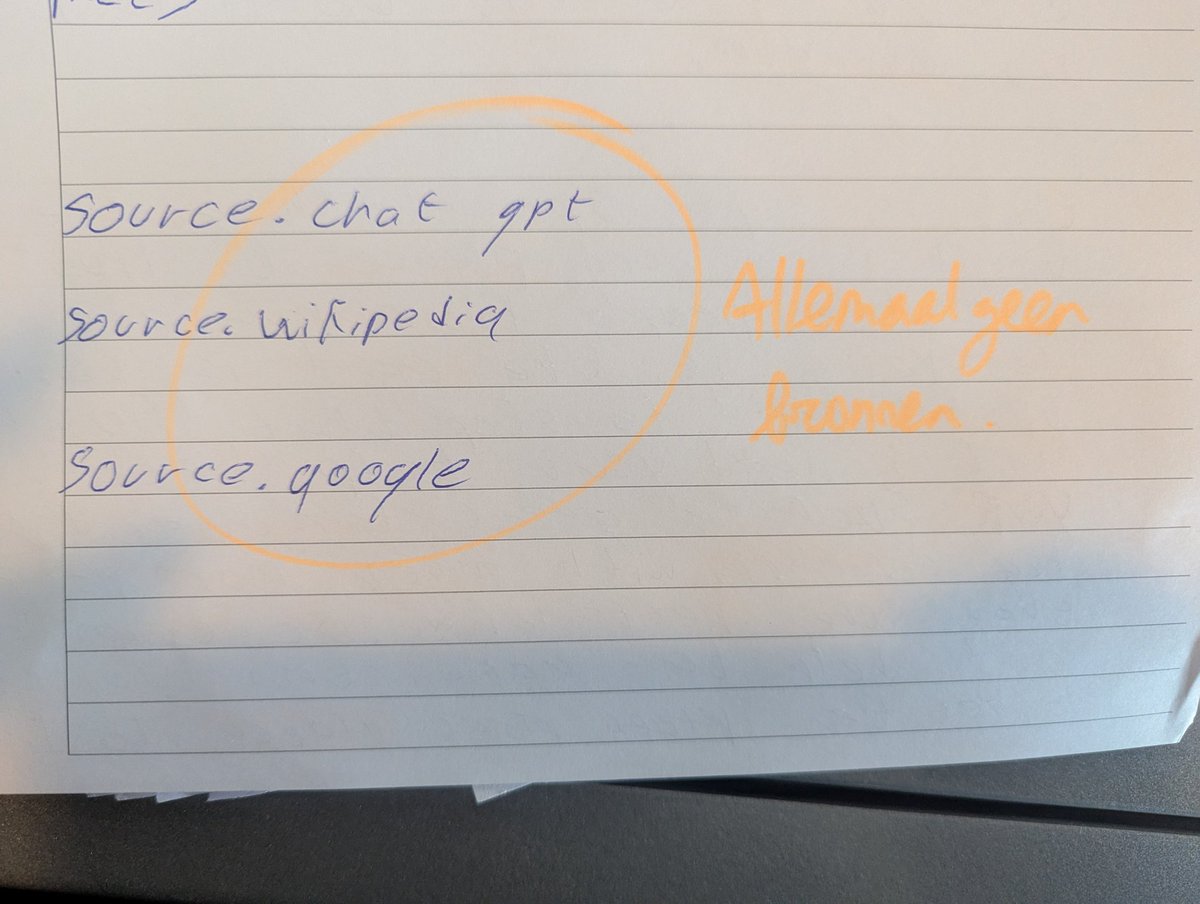 source. chat gpt
source. wikipedia
Allemaal geen
bronnen.
source. google